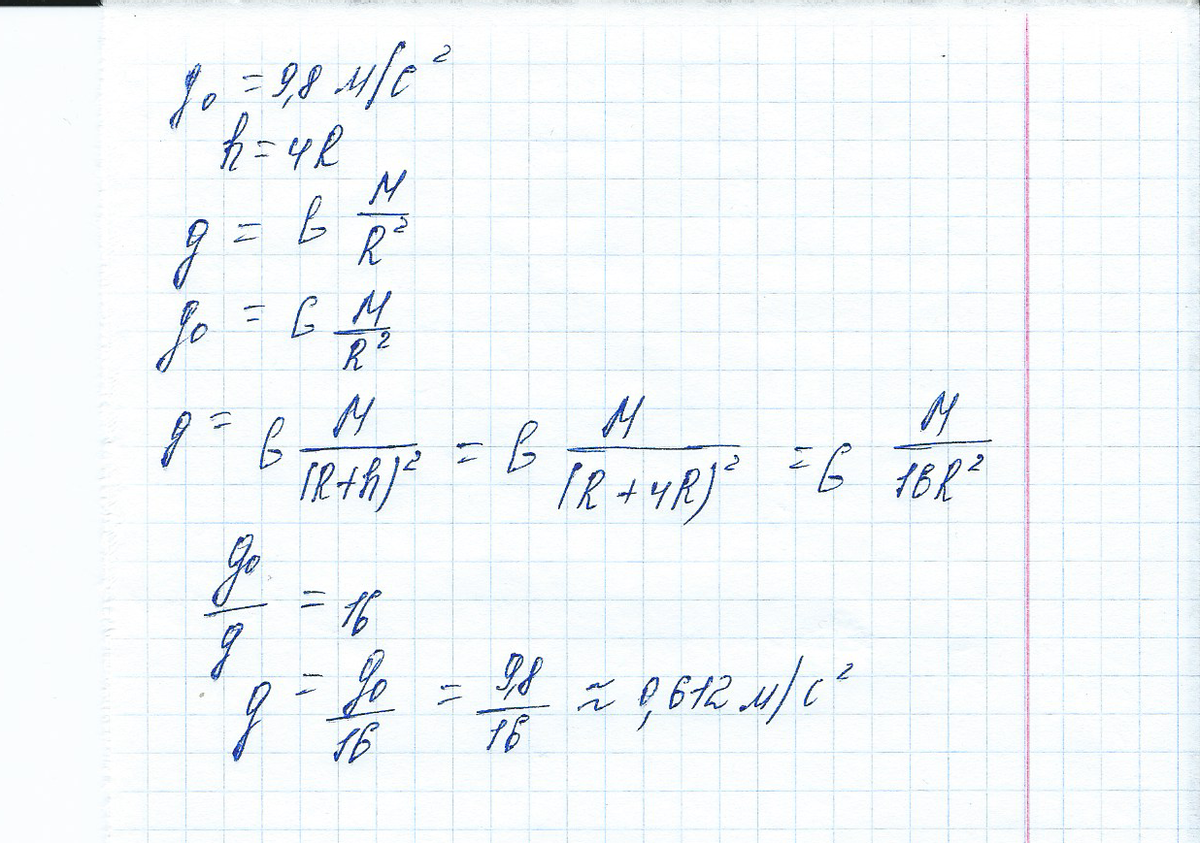 g₀ = 9,8 м/с²
h = 4R
g = G M/R²
g₀ = G M/R²
g = G M/(R+h)² = G M/(R+4R)² = G M/16R²
g₀/g = 16
g = g₀/16 = 9,8/16 ≈ 0,612 м/с²